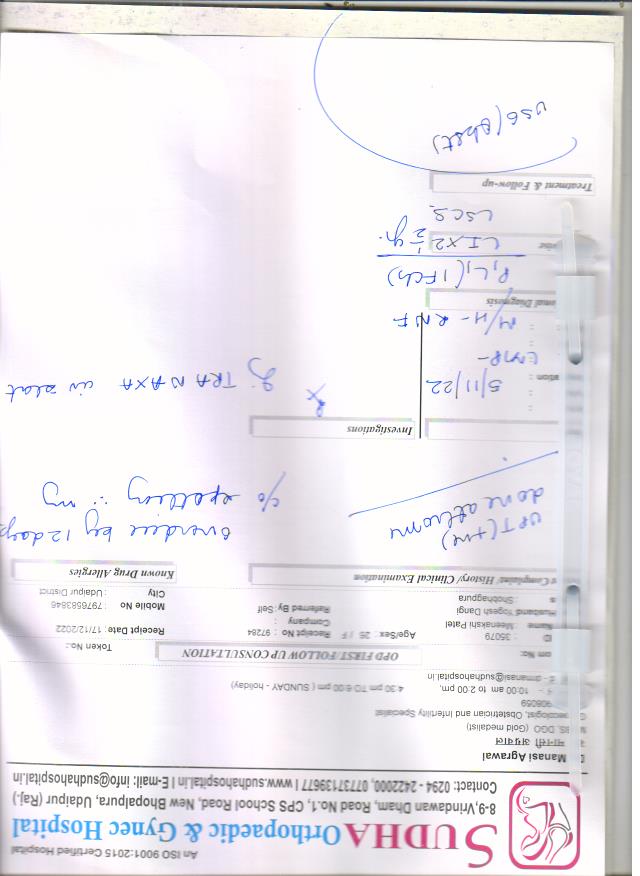 An ISO 9001:2015 Certified Hospital
SUDHA Orthopaedic & Gynec Hospital
8-9, Vrindawan Dham, Road No.1, CPS School Road, New Bhopalpura, Udaipur (Raj.)
Contact: 0294 - 2422000, 07737139677 | www.sudhahospital.in | E-mail: info@sudhahospital.in
Manasi Agrawal
मानसी अग्रवाल
DGO (Gold medalist)
Obstetrician and Infertility Specialist
908059
10:00 am to 2:00 pm, 4:30 pm TO 6:00 pm ( SUNDAY - holiday)
drmanasi@sudhahospital.in
OPD FIRST/FOLLOW UP CONSULTATION
Token No.:
ID : 35079
Age/Sex : 26 / F
Receipt No : 97284
Receipt Date : 17/12/2022
Name Meenakshi Patel
Company :
Mobile No : 7976583846
Husband Yogesh Dangi
Referred By : Self
City : Udaipur District
: Shobhagpura
Complaint/ History/ Clinical Examination
Known Drug Allergies
UPT (+ve)
done at home
overdue by 12 days
c/o spotting ∵ mg
Investigations
Rx
5/11/22
LMP -
TRANAXA iv stat
M/H -
P1L1 (1 FCh)
LSCS
Treatment & Follow-up
USG (obst)